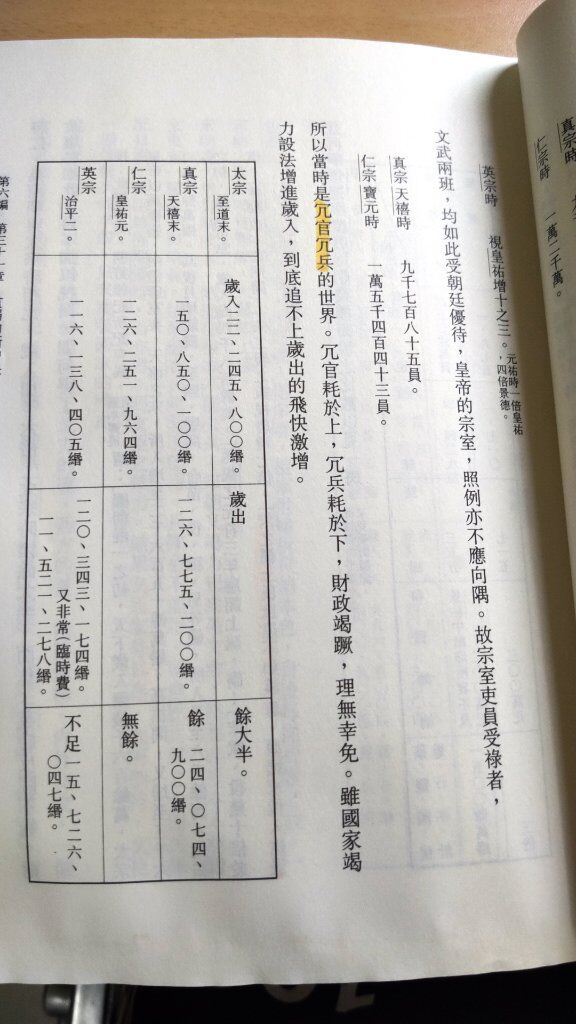 真宗時
仁宗時　一萬二千萬。
英宗時　視皇祐增十之三。元祐時一倍皇祐，四倍景德。
文武兩班，均如此受朝廷優待，皇帝的宗室，照例亦不應向隅。故宗室吏員受祿者，
真宗天禧時　九千七百八十五員。
仁宗寶元時　一萬五千四百四十三員。
所以當時是冗官冗兵的世界。冗官耗於上，冗兵耗於下，財政竭蹶，理無幸免。雖國家竭
力設法增進歲入，到底追不上歲出的飛快激增。
太宗至道末。　歲入二二、二四五、八〇〇緡。　歲出　餘大半。
真宗天禧末。　一五〇、八五〇、一〇〇緡。　一二六、七七五、二〇〇緡。　餘二四、〇七四、九〇〇緡。
仁宗皇祐元。　一二六、二五一、九六四緡。　無餘。
英宗治平二。　一一六、一三八、四〇五緡。　一二〇、三四三、一七四緡。又非常（臨時費）一一、五二一、二七八緡。　不足一五、七二六、〇四七緡。
第六編　第三十一章